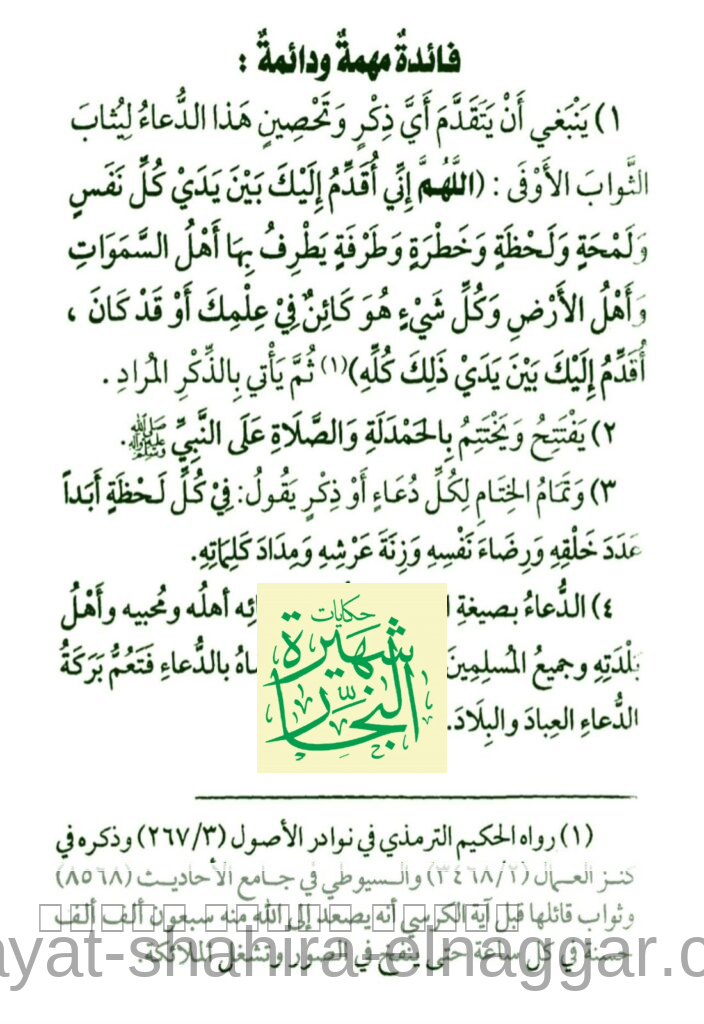 فائدةٌ مهمةٌ ودائمةٌ :
١) يَنْبَغي أَنْ يَتَقَدَّمَ أَيَّ ذِكْرٍ وَتَحْصِينٍ هَذا الدُّعاءُ لِيُثابَ
الثَّوابَ الأَوْفَى : (اللَّهُمَّ إِنِّي أُقَدِّمُ إِلَيْكَ بَيْنَ يَدَيْ كُلِّ نَفَسٍ
وَلَمْحَةٍ وَلَحْظَةٍ وَخَطْرَةٍ وَطَرْفَةٍ يَطْرِفُ بِهَا أَهْلُ السَّمَوَاتِ
وَأَهْلُ الأَرْضِ وَكُلِّ شَيْءٍ هُوَ كَائِنٌ فِيْ عِلْمِكَ أَوْ قَدْ كَانَ ،
أُقَدِّمُ إِلَيْكَ بَيْنَ يَدَيْ ذَلِكَ كُلِّهِ)(١) ثُمَّ يَأْتي بِالذِّكْرِ المُرادِ .
٢) يَفْتَتِحُ وَيَخْتَتِمُ بِالحَمْدَلَةِ وَالصَّلَاةِ عَلَى النَّبِيِّ ﷺ.
٣) وَتَمَامُ الخِتَامِ لِكُلِّ دُعَاءٍ أَوْ ذِكْرٍ يَقُولُ: فِيْ كُلِّ لَحْظَةٍ أَبَداً
عَدَدَ خَلْقِهِ وَرِضَاءَ نَفْسِهِ وَزِنَةَ عَرْشِهِ وَمِدَادَ كَلِمَاتِهِ.
٤) الدُّعاءُ بصيغةِ أهلُه ومُحبيه وأَهْلُ
بَلْدَتِهِ وجميعُ المُسلِمِينَ بالدُّعاءِ فَتَعُمُّ بَرَكَةُ
الدُّعاءِ العِبادَ والبِلَادَ.
حكايات
شهيرة
النجار
(١) رواه الحكيم الترمذي في نوادر الأصول (٢٦٧/٣) وذكره في
كنز العمال (٣٤٦٨/٢) والسيوطي في جامع الأحاديث (٨٥٦٨)
وثواب قائلها قبل آية الكرسي أنه يصعد إلى الله منه سبعون ألف ألف
حسنة في كل ساعة حتى ينفخ في الصور وتشغل الملائكة.
ayat-shahira-elnaggar.c